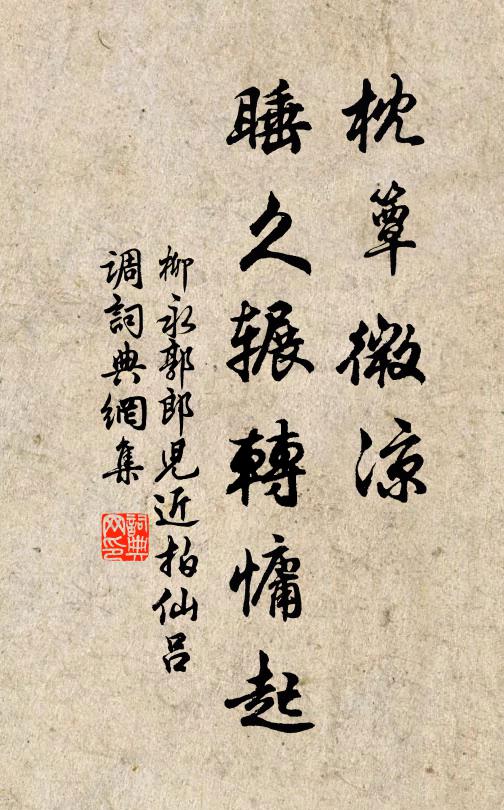 枕簟微涼
睡久輾轉慵起
柳永郭郎兒近拍仙呂
調詞典網集
詞典
网印